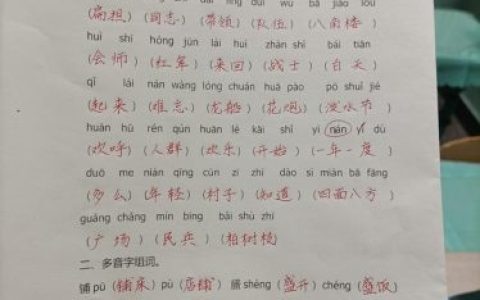 dài lǐng duì wu bā jiǎo lóu
(扁担)(同志)(带领)(队伍)(八角楼)
huì shī hóng jūn lái huí zhàn shì bái tiān
(会师)(红军)(来回)(战士)(白天)
qǐ lái nán wàng lóng chuán huā pào pō shuǐ jié
(起来)(难忘)(龙船)(花炮)(泼水节)
huān hū rén qún huān lè kāi shǐ yì nián yí dù
(欢呼)(人群)(欢乐)(开始)(一年一度)
duō me nián qīng cūn zi zhī dào sì miàn bā fāng
(多么)(年轻)(村子)(知道)(四面八方)
guǎng chǎng mín bīng bǎi shù zhī
(广场)(民兵)(柏树枝)
二、多音字组词。
铺pū(铺床)pù(店铺) 盛shèng(盛开)chéng(盛饭)